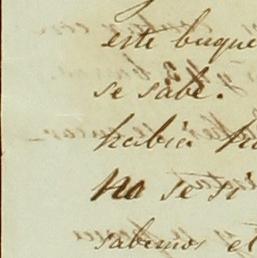 este buque
se sabe.
habia
no se si
sabemos el